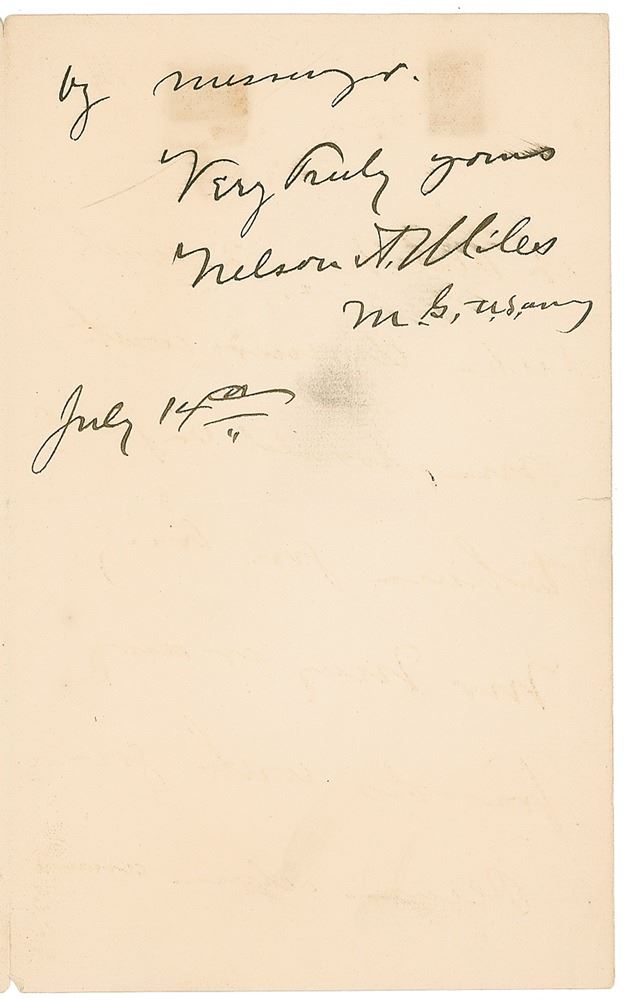 by messenger.
Very Truly yours
Nelson A. Miles
M. G., U.S. Army
July 14th
"